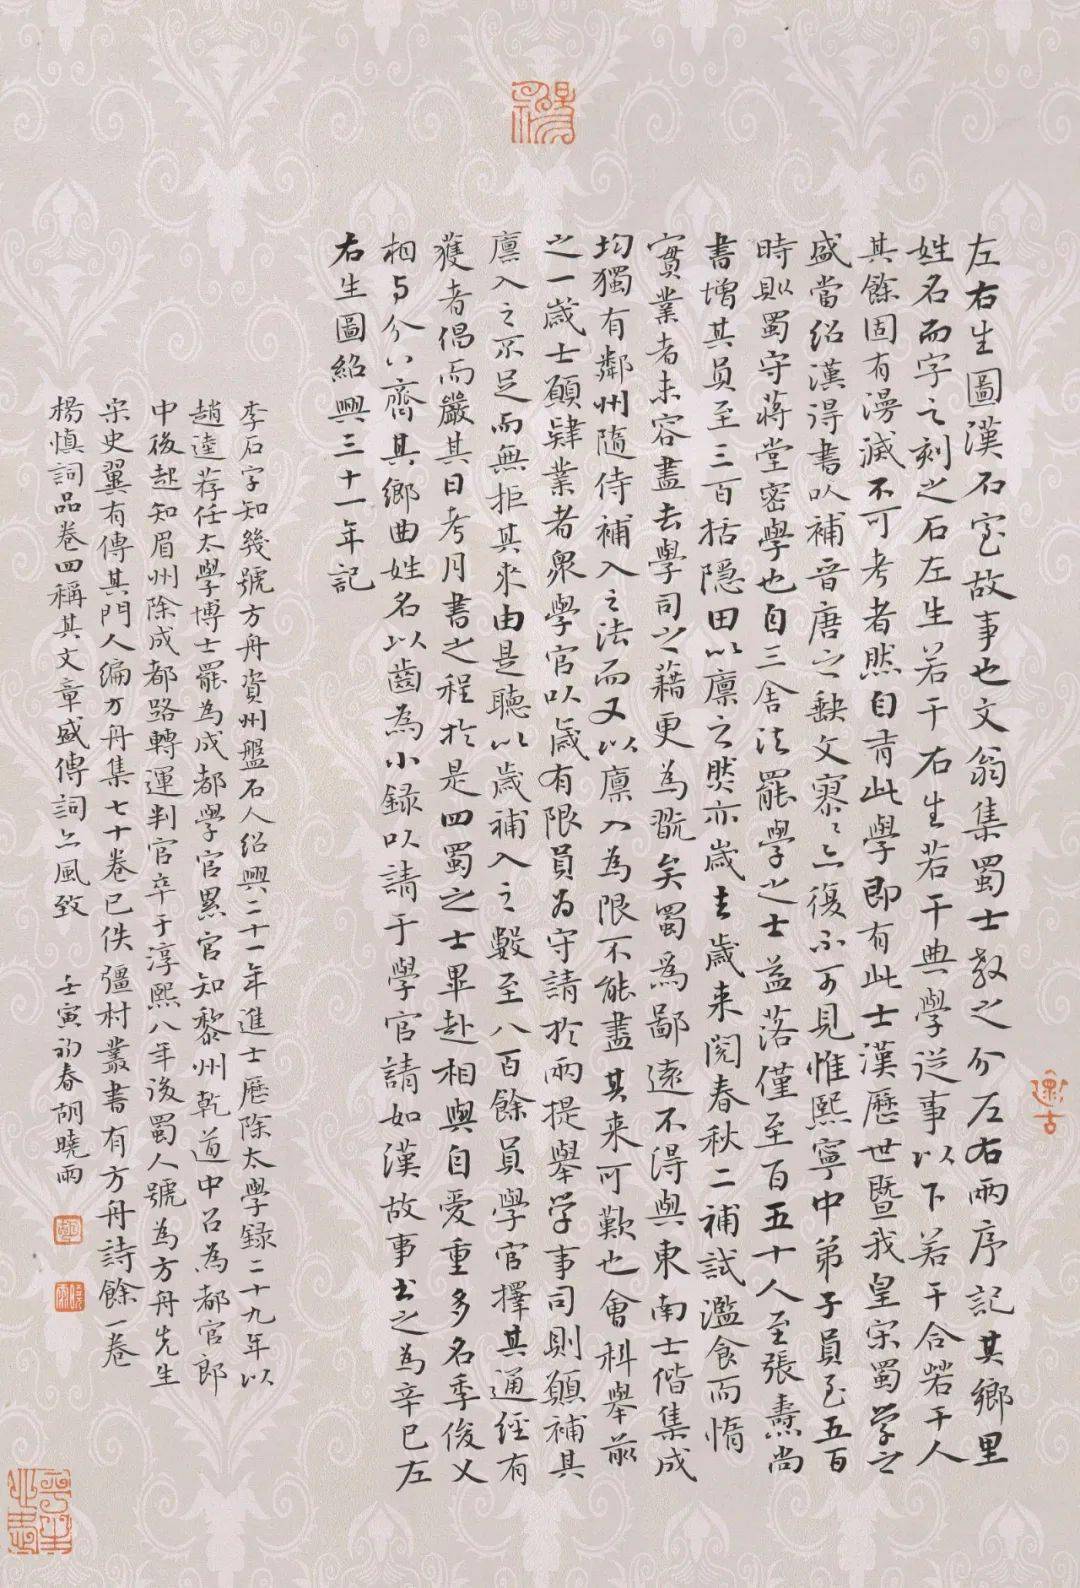 左右生圖漢石室故事也文翁集蜀士教之分左右兩序記其鄉里
姓名而字之刻之石左生若干右生若干典學從事以下若干合若干人
其餘固有漫滅不可考者然自有此學即有此士漢歷世暨我皇宋蜀学之
盛當紹漢得書以補晉唐之缺文寥〻亦復不可見惟熙寧中弟子員至五百
時則蜀守蔣堂密學也自三舍法罷學之士益落僅至百五十人至張燾尚
書增其員至三百括隱田以廩之然亦歲去歲来閱春秋二補試濫食而惰
實業者未容盡去學司之藉更為翫矣蜀為鄙遠不得與東南士偕集成
均獨有鄰州隨侍補入之法而又以廩入為限不能盡其来可歎也會科舉前
之一歲士願肄業者衆學官以歲有限員为守請於兩提舉学事司則願補其
廩入之不足而無拒其来由是聽以歲補入之數至八百餘員學官擇其通經有
獲者倡而嚴其日考月書之程於是四蜀之士畢赴相與自爱重多名季俊乂
相与分八齋其鄉曲姓名以齒為小録以請于學官請如漢故事书之為辛巳左
右生圖紹興三十一年記
李石字知幾號方舟資州盤石人紹興二十一年進士歷除太學録二十九年以
趙逵荐任太學博士罷為成都學官累官知黎州乾道中召為都官郎
中後起知眉州除成都路轉運判官卒于淳熙八年後蜀人號為方舟先生
宋史翼有傳其門人编方舟集七十卷已佚彊村叢書有方舟詩餘一卷
楊慎詞品卷四稱其文章盛傳詞亦風致 壬寅初春胡曉雨